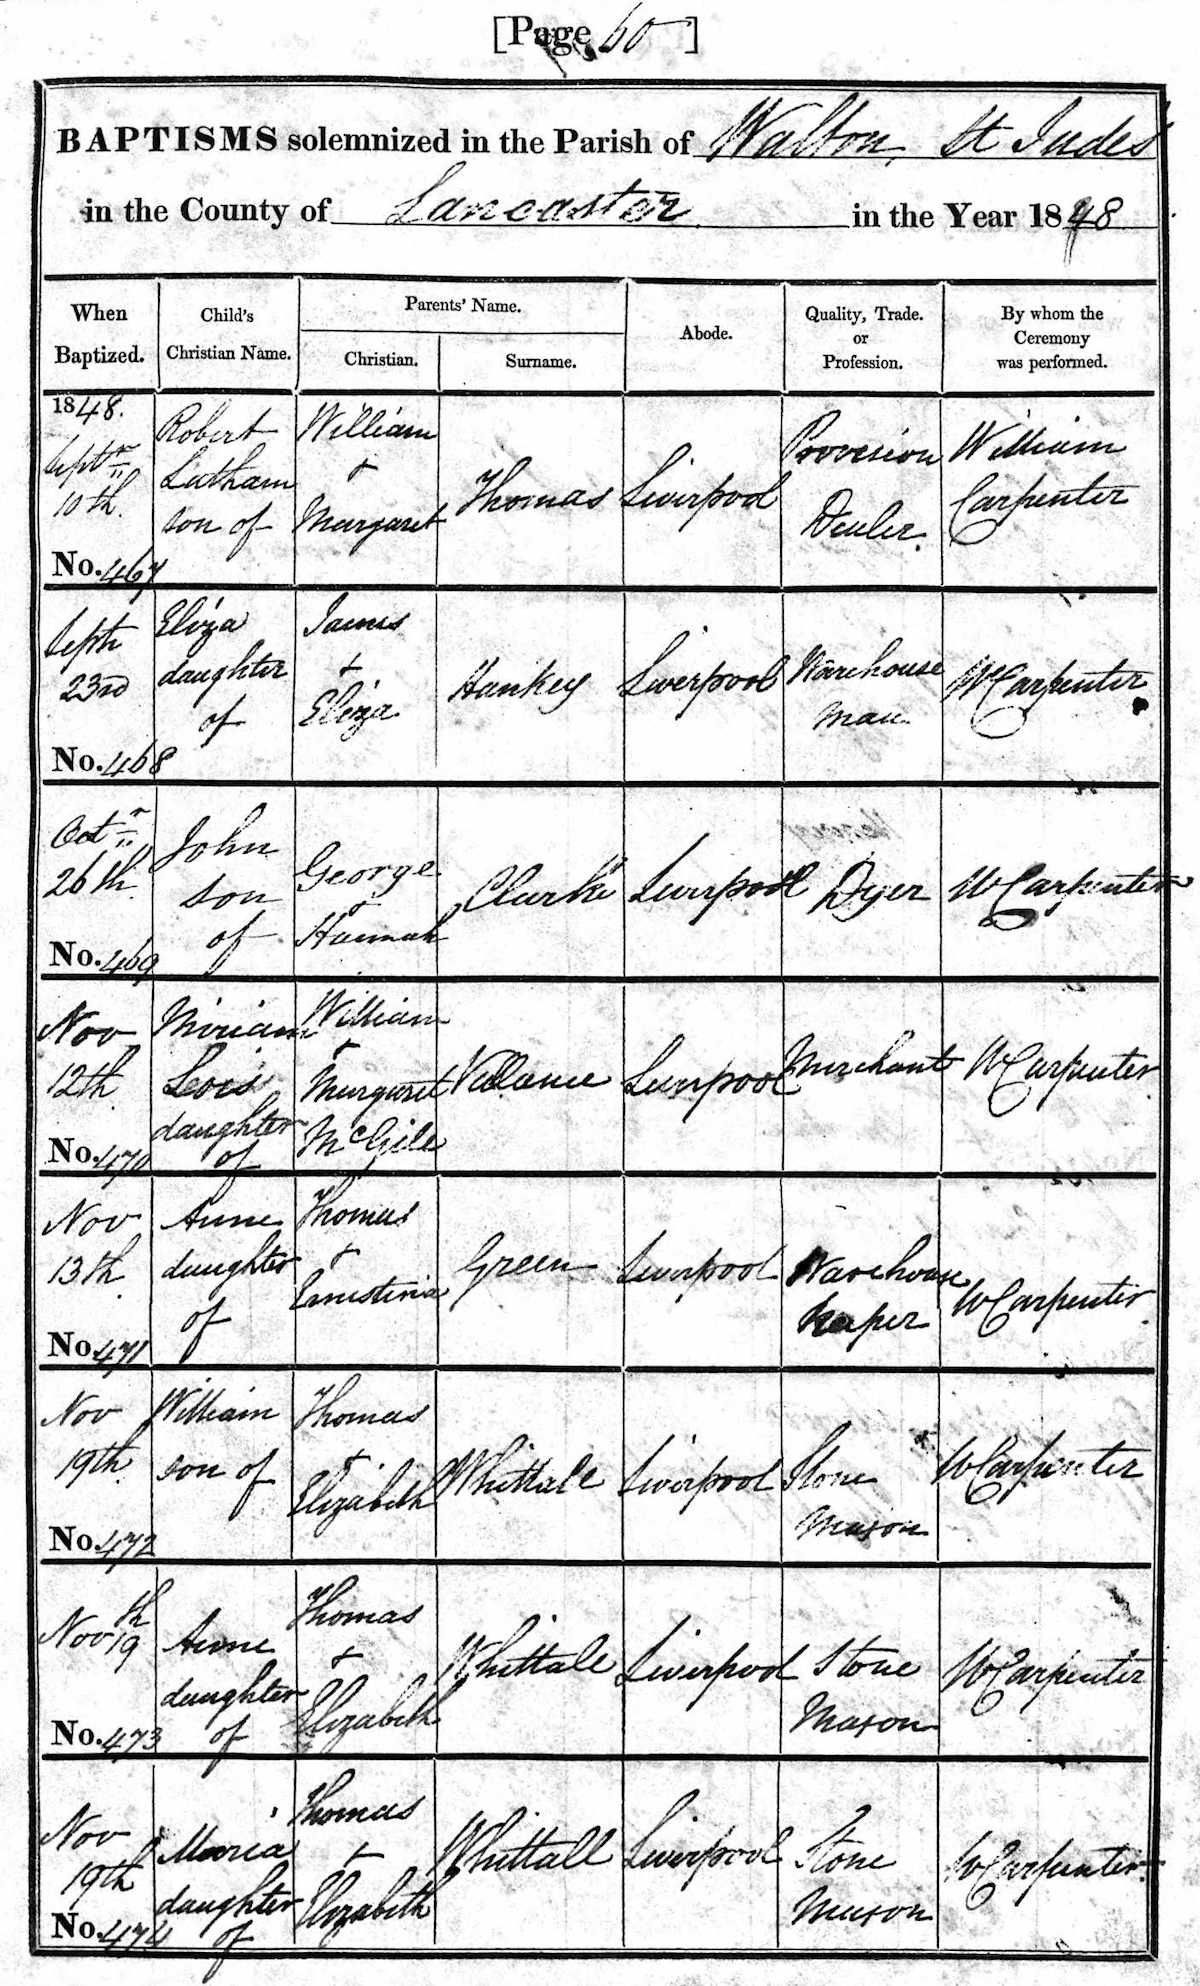 [Page 60]
BAPTISMS solemnized in the Parish of Walton, St Judes
in the County of Lancaster in the Year 1848
When Baptized.
Child's Christian Name.
Parents' Name.
Christian.
Surname.
Abode.
Quality, Trade. or Profession.
By whom the Ceremony was performed.
1848.
Septr
10th.
No. 467
Robert
Latham
son of
William
+
Margaret
Thomas
Liverpool
Provision
Dealer.
William
Carpenter
Septr
23rd
No. 468
Eliza
daughter
of
James
+
Eliza
Hankey
Liverpool
Warehouse
man
W Carpenter
Octr
26th
No. 469
John
son
of
George
+
Hannah
Clarke
Liverpool
Dyer
W Carpenter
Nov
12th
No. 470
Miriam
Lois
daughter
of
William
+
Margaret
McGile
Vallance
Liverpool
Merchant
W Carpenter
Nov
13th
No. 471
Anne
daughter
of
Thomas
+
Ernestina
Green
Liverpool
Warehouse
keeper
W Carpenter
Nov
19th
No. 472
William
son of
Thomas
+
Elizabeth
Whittall
Liverpool
Stone
Mason
W Carpenter
Nov 19th
No. 473
Anne
daughter
of
Thomas
+
Elizabeth
Whittall
Liverpool
Stone
Mason
W Carpenter
Nov
19th
No. 474
Maria
daughter
of
Thomas
+
Elizabeth
Whittall
Liverpool
Stone
Mason
W Carpenter